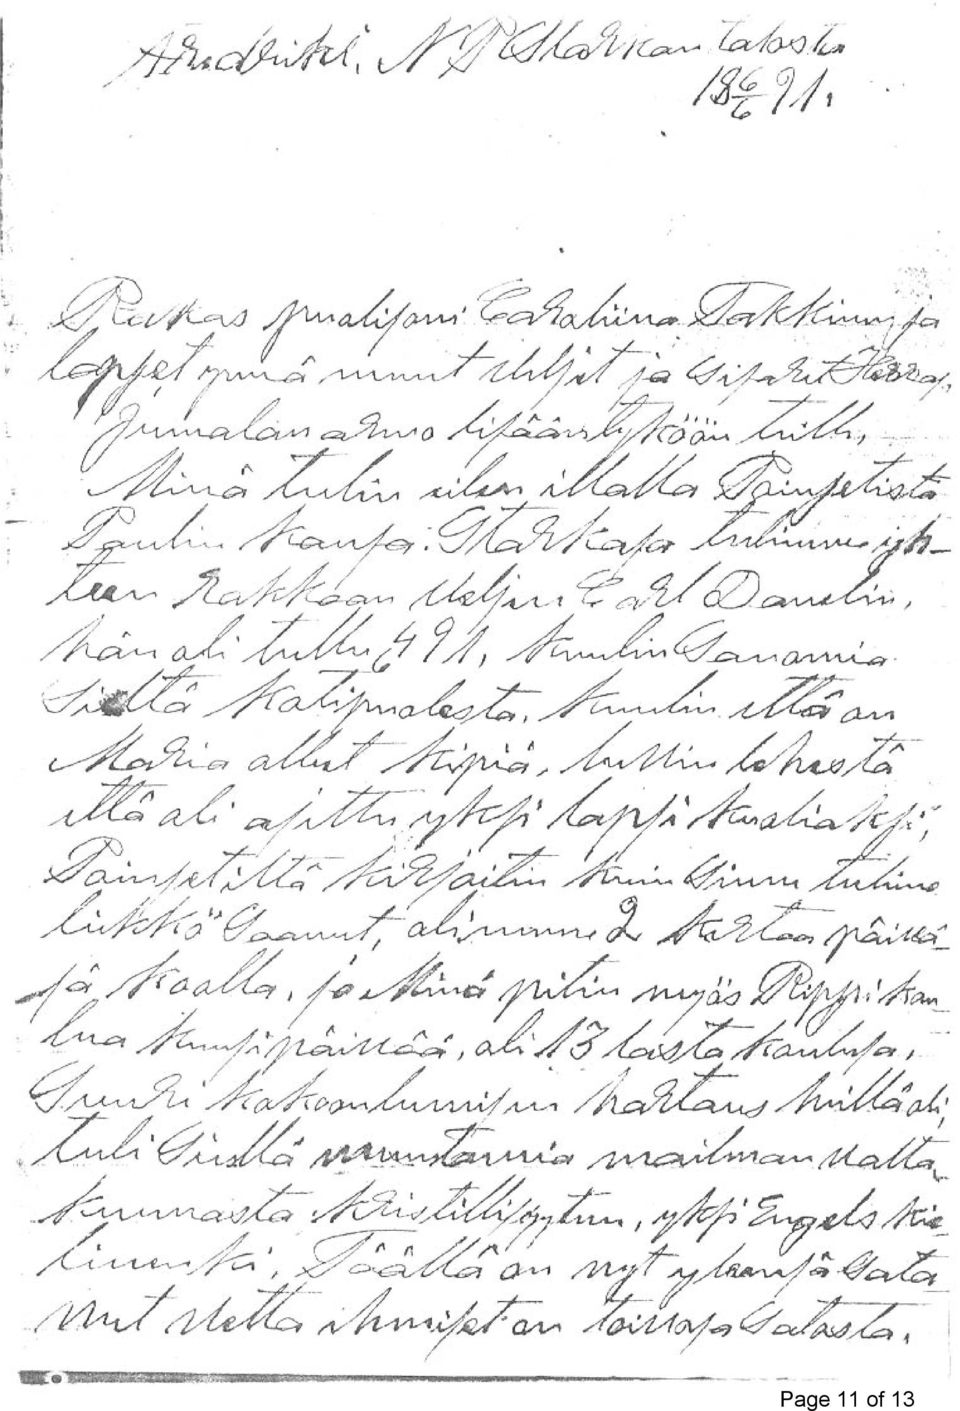 N P Starkan talosta
18 6/6 91.
Rakas pualisoni Caroliina Takkinen ja
lapset ynnä muut Veljet ja Sisaret Herras,
Jumalan armo lisääntyköön teille,
Minä tulin eilen illalla Poinsetista
Paulin kansa. Starkasa tulimme yh-
teen Rakkaan Veljen Carl Danelin,
hän oli tullu 4/6 91, kuulin Sanomia
Sieltä kotipualesta. kuulin että on
Maria ollut kipiä, luvin lehestä
että oli ajettu yksi lapsi kualiaksi,
Poinsetiltä kirjoitin kuin Sinne tulime
liekkö Saanut, olimme 2 kertaa päivä-
sä koolla, ja Minä pitin myös Rippi kou
lua kuusi päivää, oli 13 lasta koulusa,
Suuri kokoonlumisen hartaus heillä oli,
tuli Siellä muutamia mailman valta
kunnasta kristillisyyten, yksi Engels kie-
linenki, Täällä on nyt yleensä Sata
nut Vettä ihmiset on toivosa Satosta.
Page 11 of 13